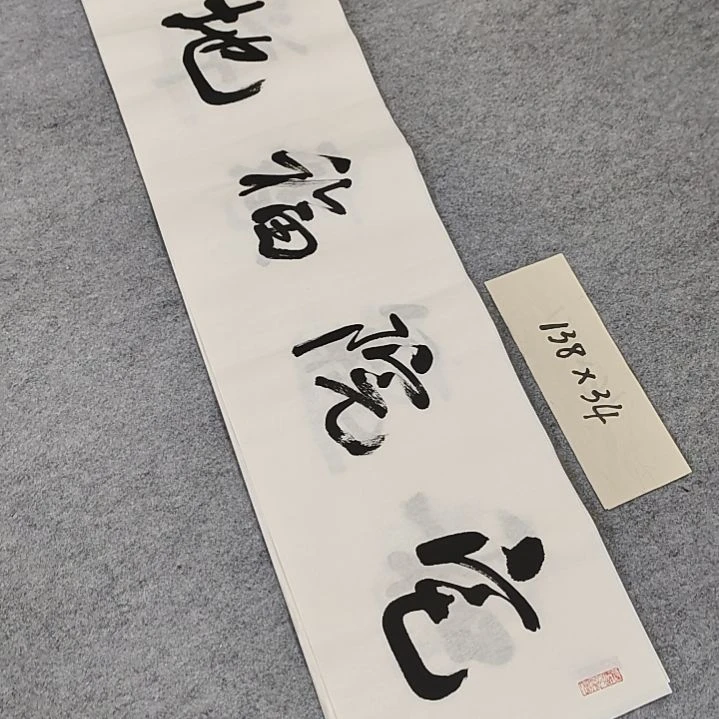 地福院宅
138×34